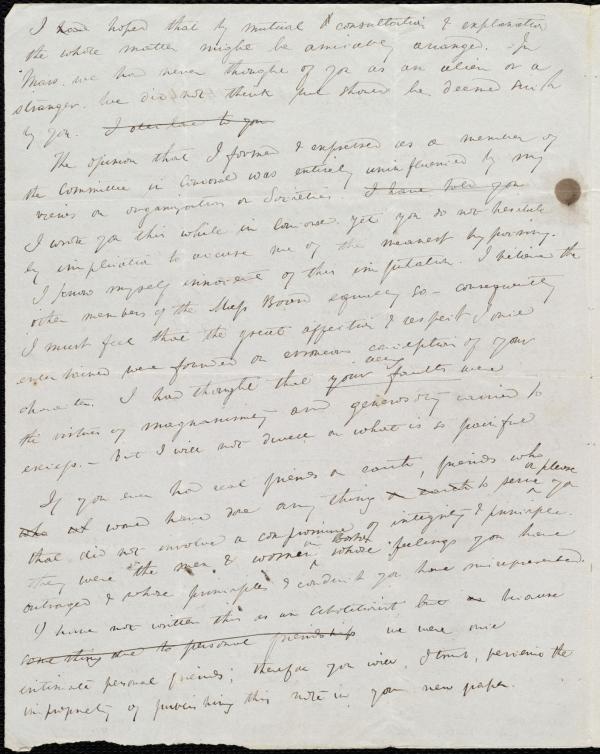 I had hoped that by mutual consultation & explanation
the whole matter might be amicably arranged. In
Mass. we had never thought of you as an alien or a
stranger. We did not think we should be deemed such
by you. to you
The opinion that I formed & expressed as a member of
the Committee in Concord was entirely uninfluenced by my
views on organization or Societies. I have told you
I wrote you this while in Concord. Yet you do not hesitate
by implication to accuse me of the meanest hypocrisy.
I know myself innocent of this imputation. I believe the
other members of the Mass Board equally so - consequently
I must feel that the great affection & respect I once
entertained were founded on erroneous conception of your
character. I had thought that your very faults were
the virtues of magnanimity and generosity carried to
excess. - But I will not dwell on what is so painful
If you ever had real friends on earth, friends who
would have done any thing to serve or please you
that did not involve a compromise of integrity & principle
they were the men & women Boston whose feelings you have
outraged & whose principles & conduct you have misrepresented.
I have not written this as an Abolitionist but because
some thing due to personal friendship we were once
intimate personal friends; therefore you will, I trust, perceive the
impropriety of publishing this note in your new paper.